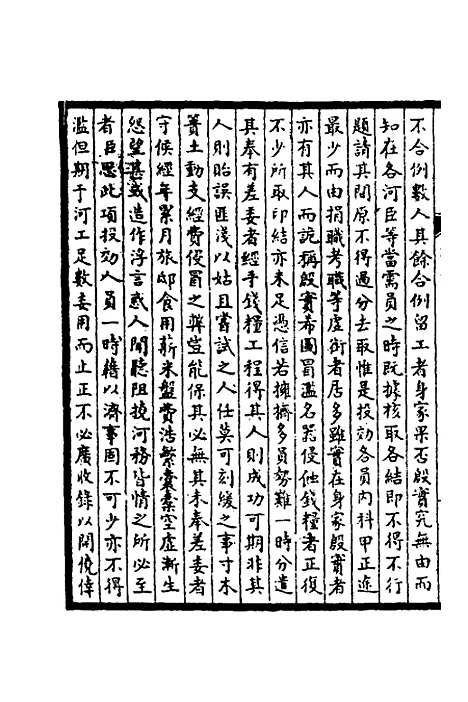 不合例數人其餘合例留工者身家果否殷實究無由而
知在各河臣等當需員之時既據核取各結即不得不行
題請其間原不得過分去取惟是投効各員內科甲正途
最少而由捐職考職等虛銜者居多雖實在身家殷實者
亦有其人而詭稱殷實希圖冒濫名器侵他錢糧者正復
不少所取印結亦未足憑信若擁擠多員勢難一時分遣
其奉有差委者經手錢糧工程得其人則成功可期非其
人則貽誤匪淺以姑且嘗試之人任莫可刻緩之事寸木
簣土動支經費侵冒之弊豈能保其必無其未奉差委者
守候經年累月旅邸食用薪米盤費浩繁囊橐空虛漸生
怨望甚或造作浮言惑人聞聽阻撓河務皆情之所必至
者臣思此項投効人員一時藉以濟事固不可少亦不得
濫但期于河工足數委用而止正不必廣收錄以開僥倖